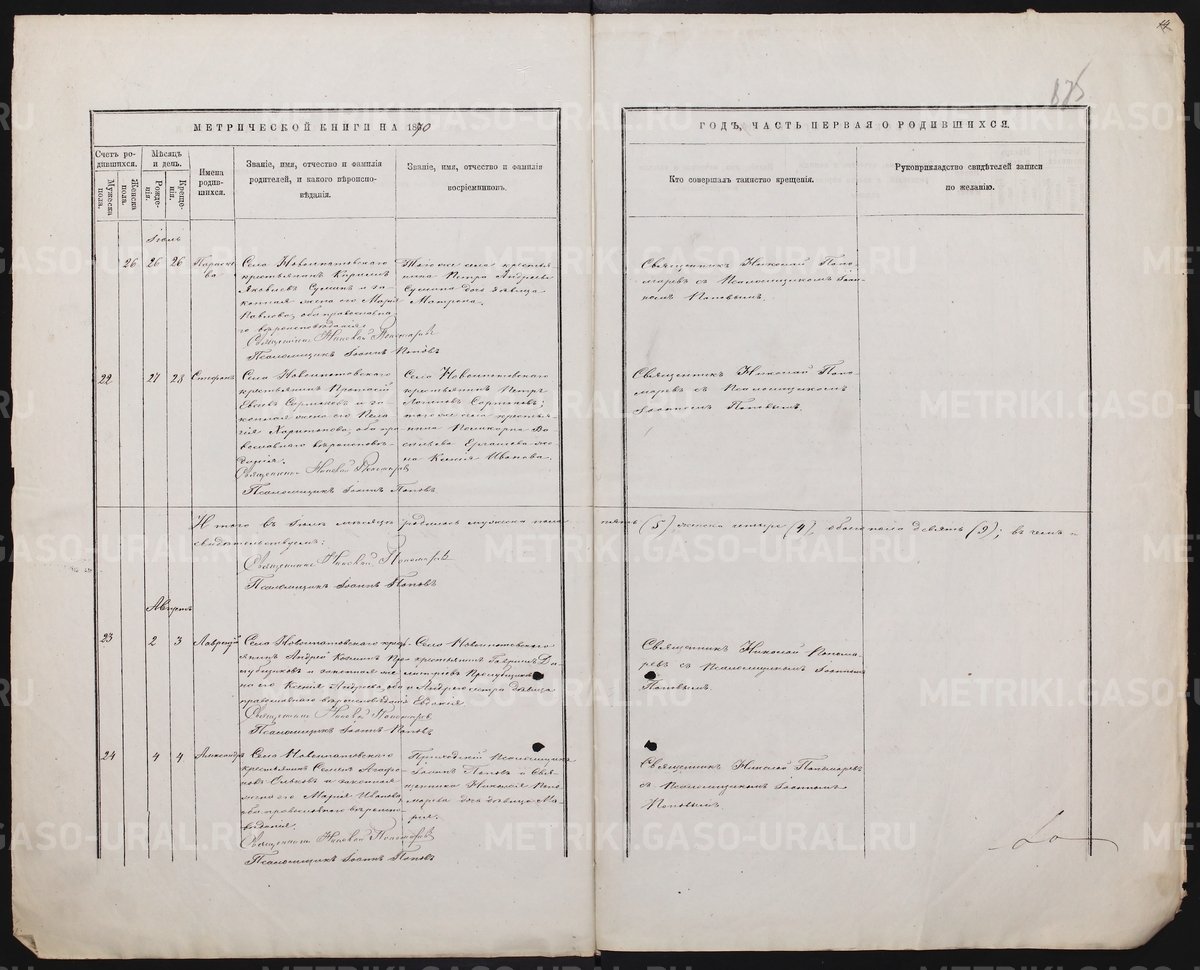 14
МЕТРИЧЕСКОЙ КНИГИ НА 1870
ГОДЪ, ЧАСТЬ ПЕРВАЯ О РОДИВШИХСЯ.
Счетъ ро-
дившихся.
Мужеска
пола.
Женска
пола.
Мѣсяцъ
и день.
Рожде-
нія.
Креще-
нія.
Имена
родив-
шихся.
Званіе, имя, отчество и фамилія
родителей, и какого вѣроиспо-
вѣданія.
Званіе, имя, отчество и фамилія
воспріемниковъ.
Кто совершалъ таинство крещенія.
Рукоприкладство свидѣтелей записи
по желанію.
Іюль
26 26 26 Параске-
ва
Села Новоипатовскаго
крестьянинъ Кириллъ
Яковлевъ Сушинъ и за-
конная жена его Марія
Павлова, оба православна-
го вѣроисповѣданія.
Священникъ Николай Пономаревъ
Псаломщикъ Іоаннъ Поповъ
Того же села крестья-
нина Петра Андреева
Сушина дочь дѣвица
Матрона.
Священникъ Николай Поно-
маревъ съ Псаломщикомъ Іоан-
номъ Поповымъ.
22 27 28 Стефанъ
Села Новоипатовскаго
крестьянинъ
и за-
конная жена его Пела-
гія Харитонова, оба пра-
вославнаго вѣроисповѣ-
данія.
Священникъ Николай Пономаревъ
Псаломщикъ Іоаннъ Поповъ
Села Новоипатовскаго
крестьянинъ Петръ
того же села крестья-
нина Поликарпа Ва-
сильева же-
на Ксенія Иванова.
Священникъ Николай Поно-
маревъ съ Псаломщикомъ
Іоанномъ Поповымъ.
Итого въ Іюлѣ мѣсяцѣ родилось мужеска пола пять (5) женска четыре (4), обоего пола девять (9); въ чемъ и
свидѣтельствуемъ:
Священникъ Николай Пономаревъ
Псаломщикъ Іоаннъ Поповъ
Августъ
23 2 3 Лаврентій
Села Новоипатовскаго крес-
тьянинъ Андрей Козминъ
и законная же-
на его Ксенія Андреева, оба
православнаго вѣроисповѣданія
Священникъ Николай Пономаревъ
Псаломщикъ Іоаннъ Поповъ
Села Новоипатовскаго
крестьянинъ Гавріилъ
и Андрея сестра дѣвица
Евдокія.
Священникъ Николай Понома-
ревъ съ Псаломщикомъ Іоанномъ
Поповымъ.
24 4 4 Александръ
Села Новоипатовскаго
крестьянинъ Семенъ Агафо-
новъ и законная
жена его Марія Иванова,
оба православнаго вѣроиспо-
вѣданія.
Священникъ Николай Пономаревъ
Псаломщикъ Іоаннъ Поповъ
Приходскій Псаломщикъ
Іоаннъ Поповъ и Свя-
щенника Николая Поно-
марева дочь дѣвица Ма-
рія.
Священникъ Николай Пономаревъ
съ Псаломщикомъ Іоанномъ
Поповымъ
METRIKI.GASO-URAL.RU